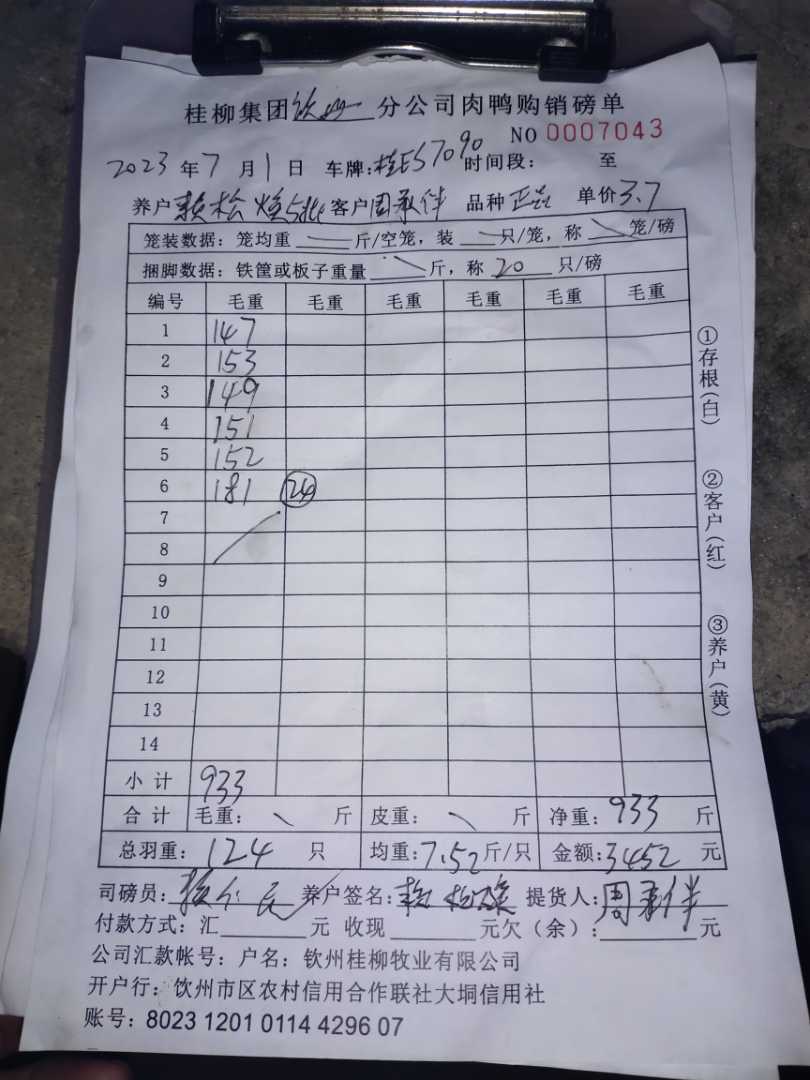 桂柳集团钦州分公司肉鸭购销磅单
NO 0007043
2023年7月1日 车牌:桂ES7090 时间段: 至
养户 赖松 客户周承伴 品种正品 单价3.7
笼装数据:笼均重 斤/空笼,装 只/笼,称 笼/磅
捆脚数据:铁筐或板子重量 斤,称20只/磅
编号 毛重 毛重 毛重 毛重 毛重 毛重
1 147
2 153
3 149
4 151
5 152
6 181 24
7
8
9
10
11
12
13
14
小计 933
合计 毛重: 斤 皮重: 斤 净重:933斤
总羽重:124只 均重:7.52斤/只 金额:3452元
司磅员: 养户签名:赖松 提货人:周承伴
付款方式:汇 元 收现 元欠(余): 元
公司汇款帐号:户名:钦州桂柳牧业有限公司
开户行:钦州市区农村信用合作联社大垌信用社
账号:8023 1201 0114 4296 07
①存根(白)
②客户(红)
③养户(黄)